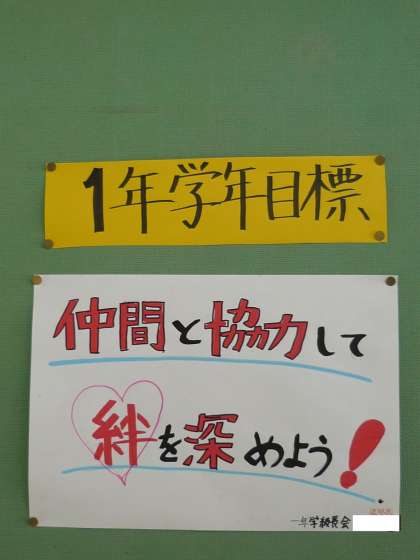 1年学年目標
仲間と協力して
絆を深めよう!
一年学級長会